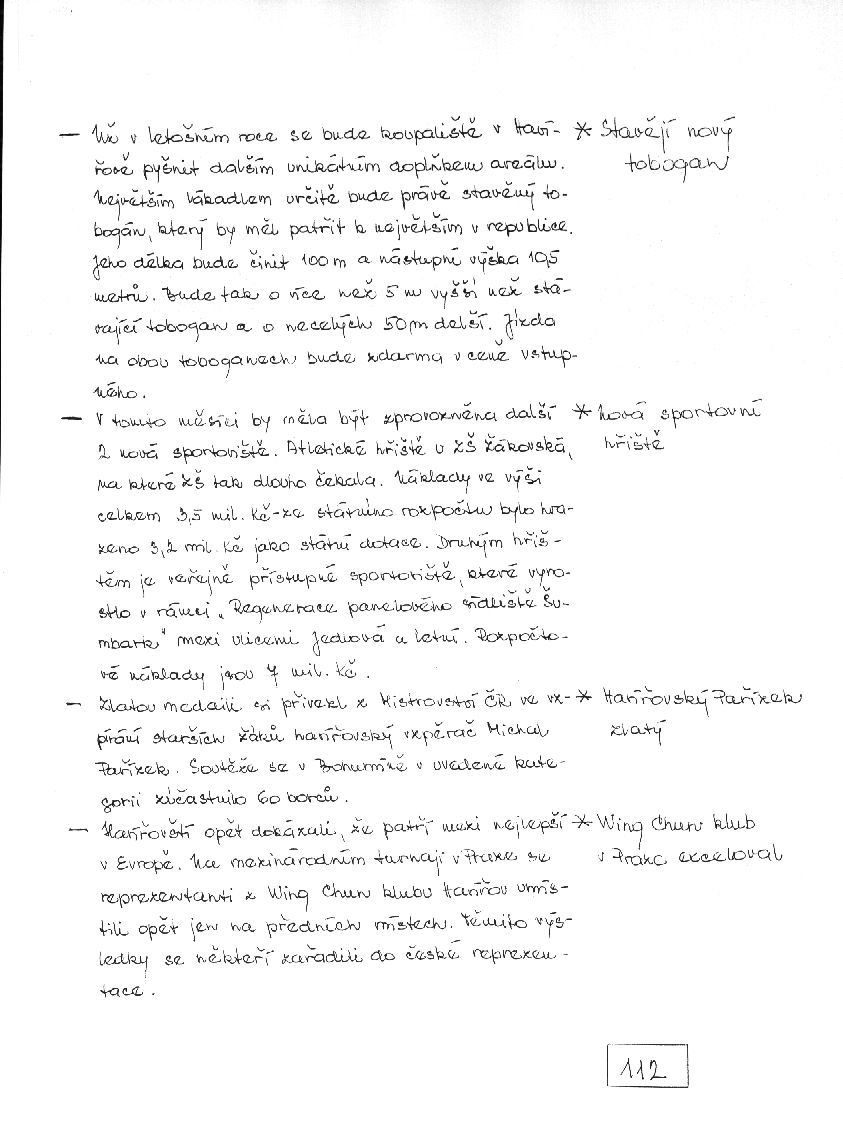 — Už v letošním roce se bude koupaliště v Haví- * Stavějí nový
řově pyšnit dalším unikátním doplňkem areálu. tobogan
Největším lákadlem určitě bude právě stavěný to-
bogán, který by měl patřit k největším v republice.
Jeho délka bude činit 100 m a nástupní výška 10,5
metrů. Bude tak o více než 5 m vyšší než stá-
vající tobogan a o necelých 50 m delší. Jízda
na obou toboganech bude zdarma v ceně vstup-
ného.
— V tomto měsíci by měla být zprovozněna další * Nová sportovní
2 nová sportoviště. Atletické hřiště u ZŠ Žákovská, hřiště
na které ZŠ tak dlouho čekala. Náklady ve výši
celkem 3,5 mil. Kč-ze státního rozpočtu bylo hra-
zeno 3,2 mil. Kč jako státní dotace. Druhým hřiš-
těm je veřejně přístupné sportoviště, které vyro-
stlo v rámci „Regenerace panelového sídliště Šu-
mbark" mezi ulicemi Jedlová a Letní. Rozpočto-
vé náklady jsou 7 mil. Kč.
— Zlatou medaili si přivezl z Mistrovství ČR ve vz- * Havířovský Pařízek
pírání starších žáků havířovský vzpěrač Michal zlatý
Pařízek. Soutěže se v Bohumíně v uvedené kate-
gorii zúčastnilo 60 borců.
— Havířovští opět dokázali, že patří mezi nejlepší * Wing Chun klub
v Evropě. Na mezinárodním turnaji v Praze se v Praze exceloval
reprezentanti z Wing Chun klubu Havířov umís-
tili opět jen na předních místech. Těmito výs-
ledky se někteří zařadili do české reprezen-
tace.
112